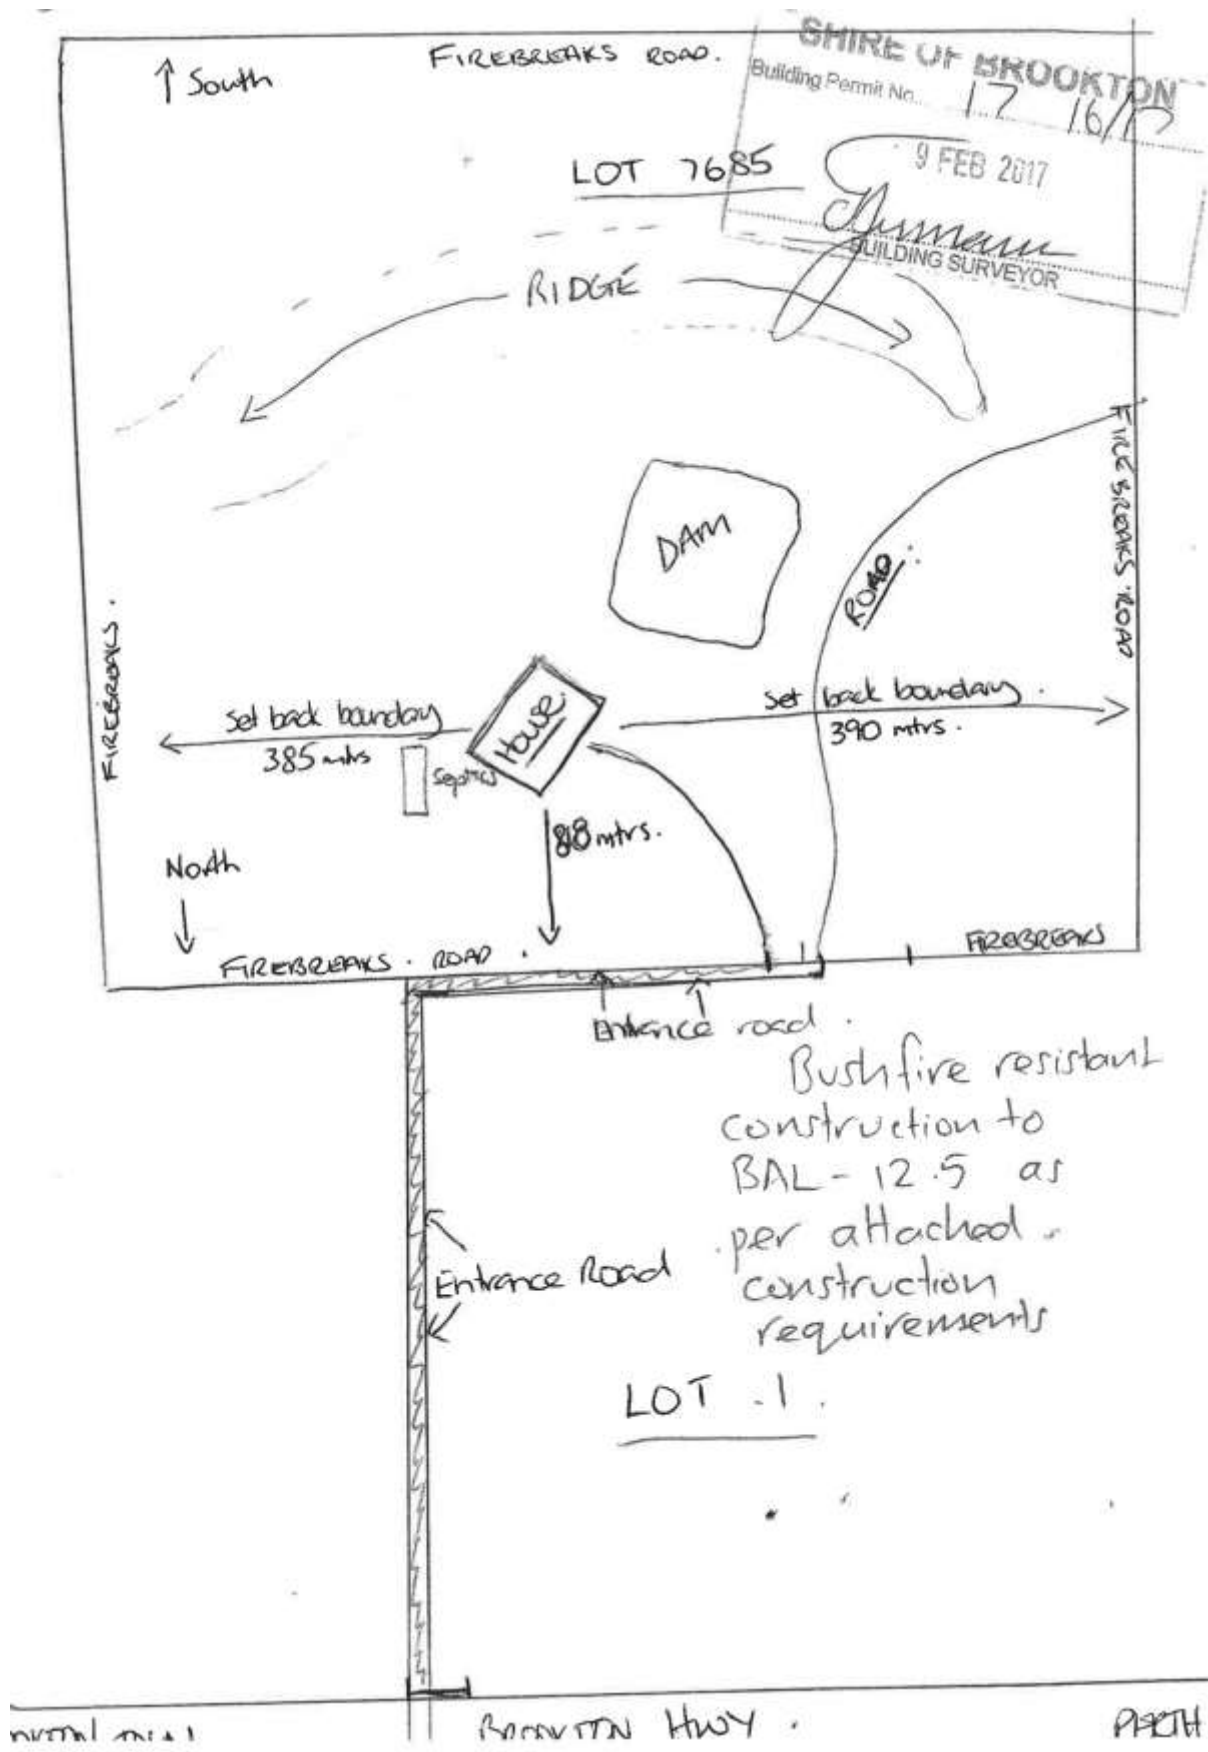 FIREBREAKS ROAD.
↑ South
SHIRE OF BROOKTON
Building Permit No. 17 16/17
LOT 7685
9 FEB 2017
BUILDING SURVEYOR
RIDGE
DAM
ROAD.
FIREBREAKS ROAD
FIREBREAKS.
House.
Set back boundary
385 mtrs
Septics
Set back boundary.
390 mtrs.
88 mtrs.
North
↓
FIREBREAKS. ROAD.
FIREBREAKS
Entrance road.
Bushfire resistant
construction to
BAL-12.5 as
per attached
construction
requirements
Entrance Road
LOT .1.
BROOKTON HWY.
PERTH